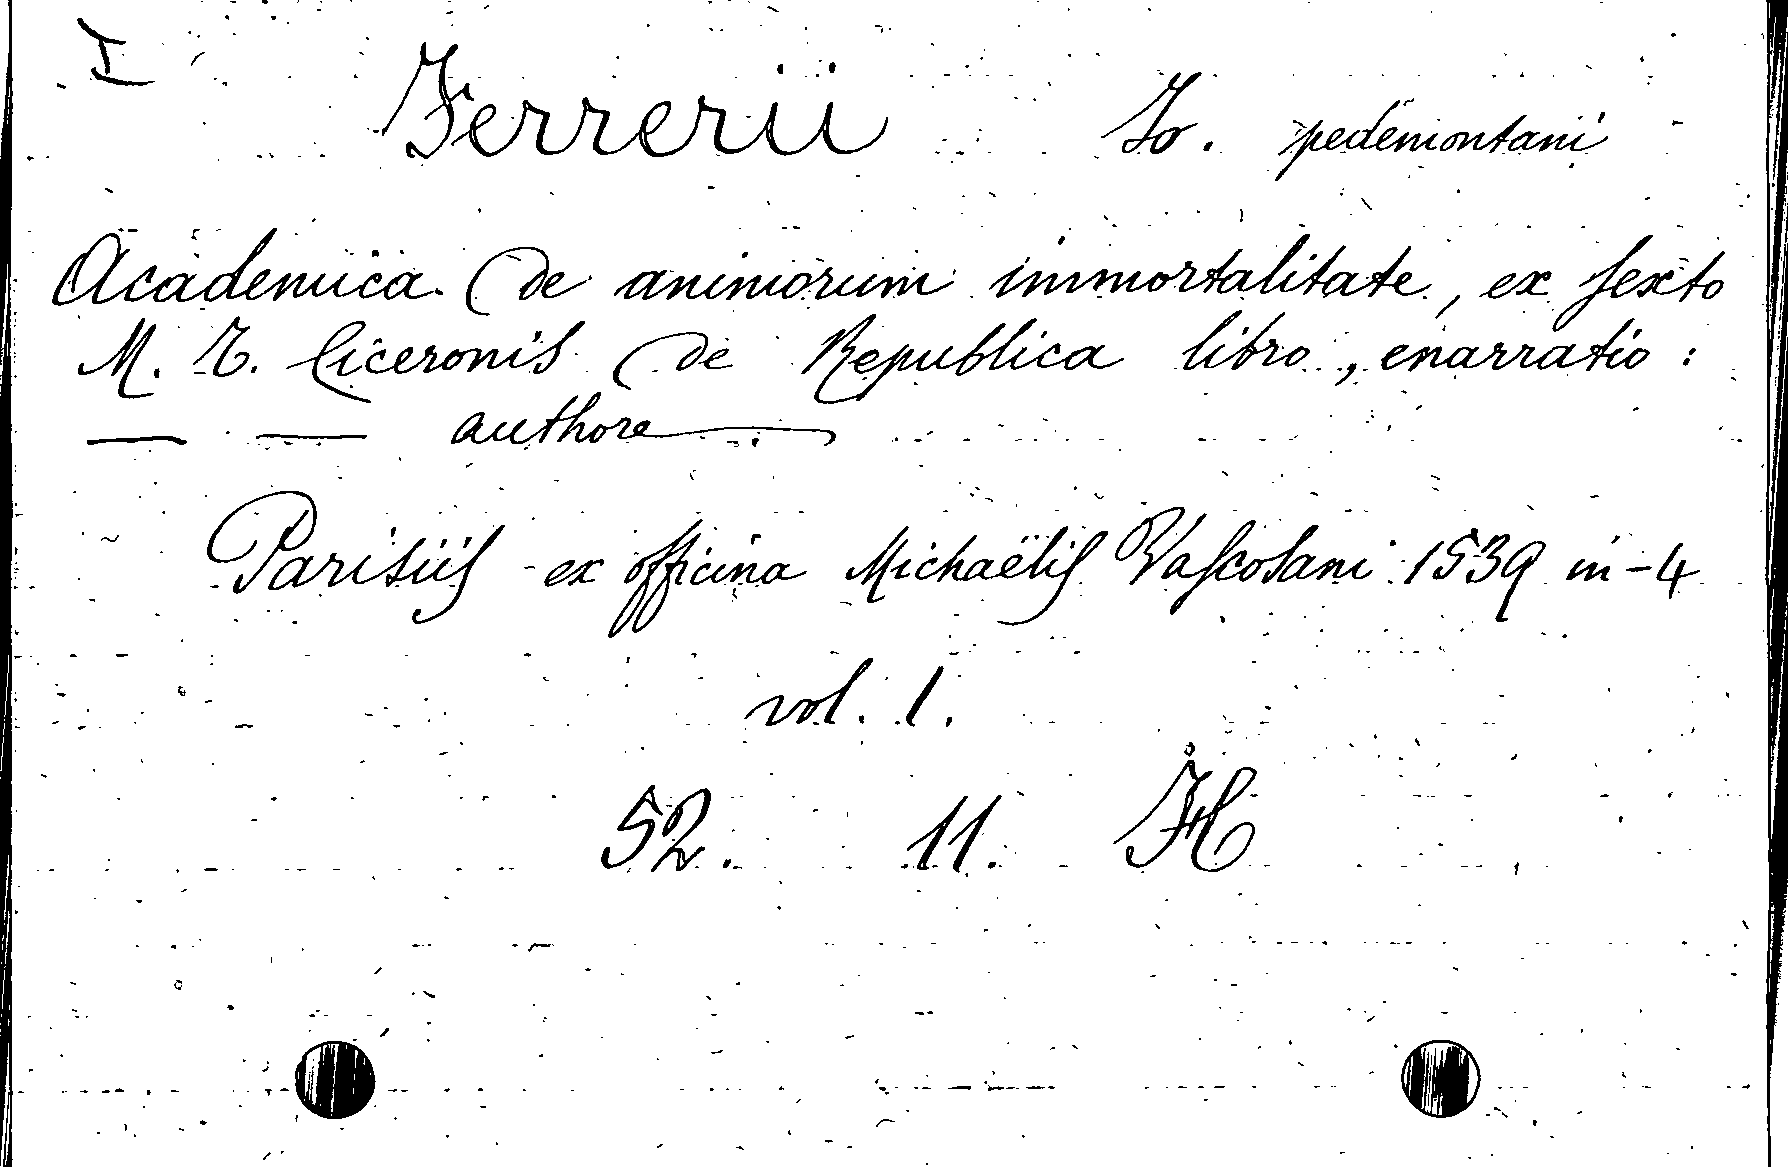 I
Ferrerii Jo. pedemontani
Academica de animorum immortalitate, ex sexto
M. T. Ciceronis de Republica libro, enarratio:
— — authore —
Parisiis ex officina Michaëlis Vascosani 1539 in-4
vol. 1.
52. 11. H